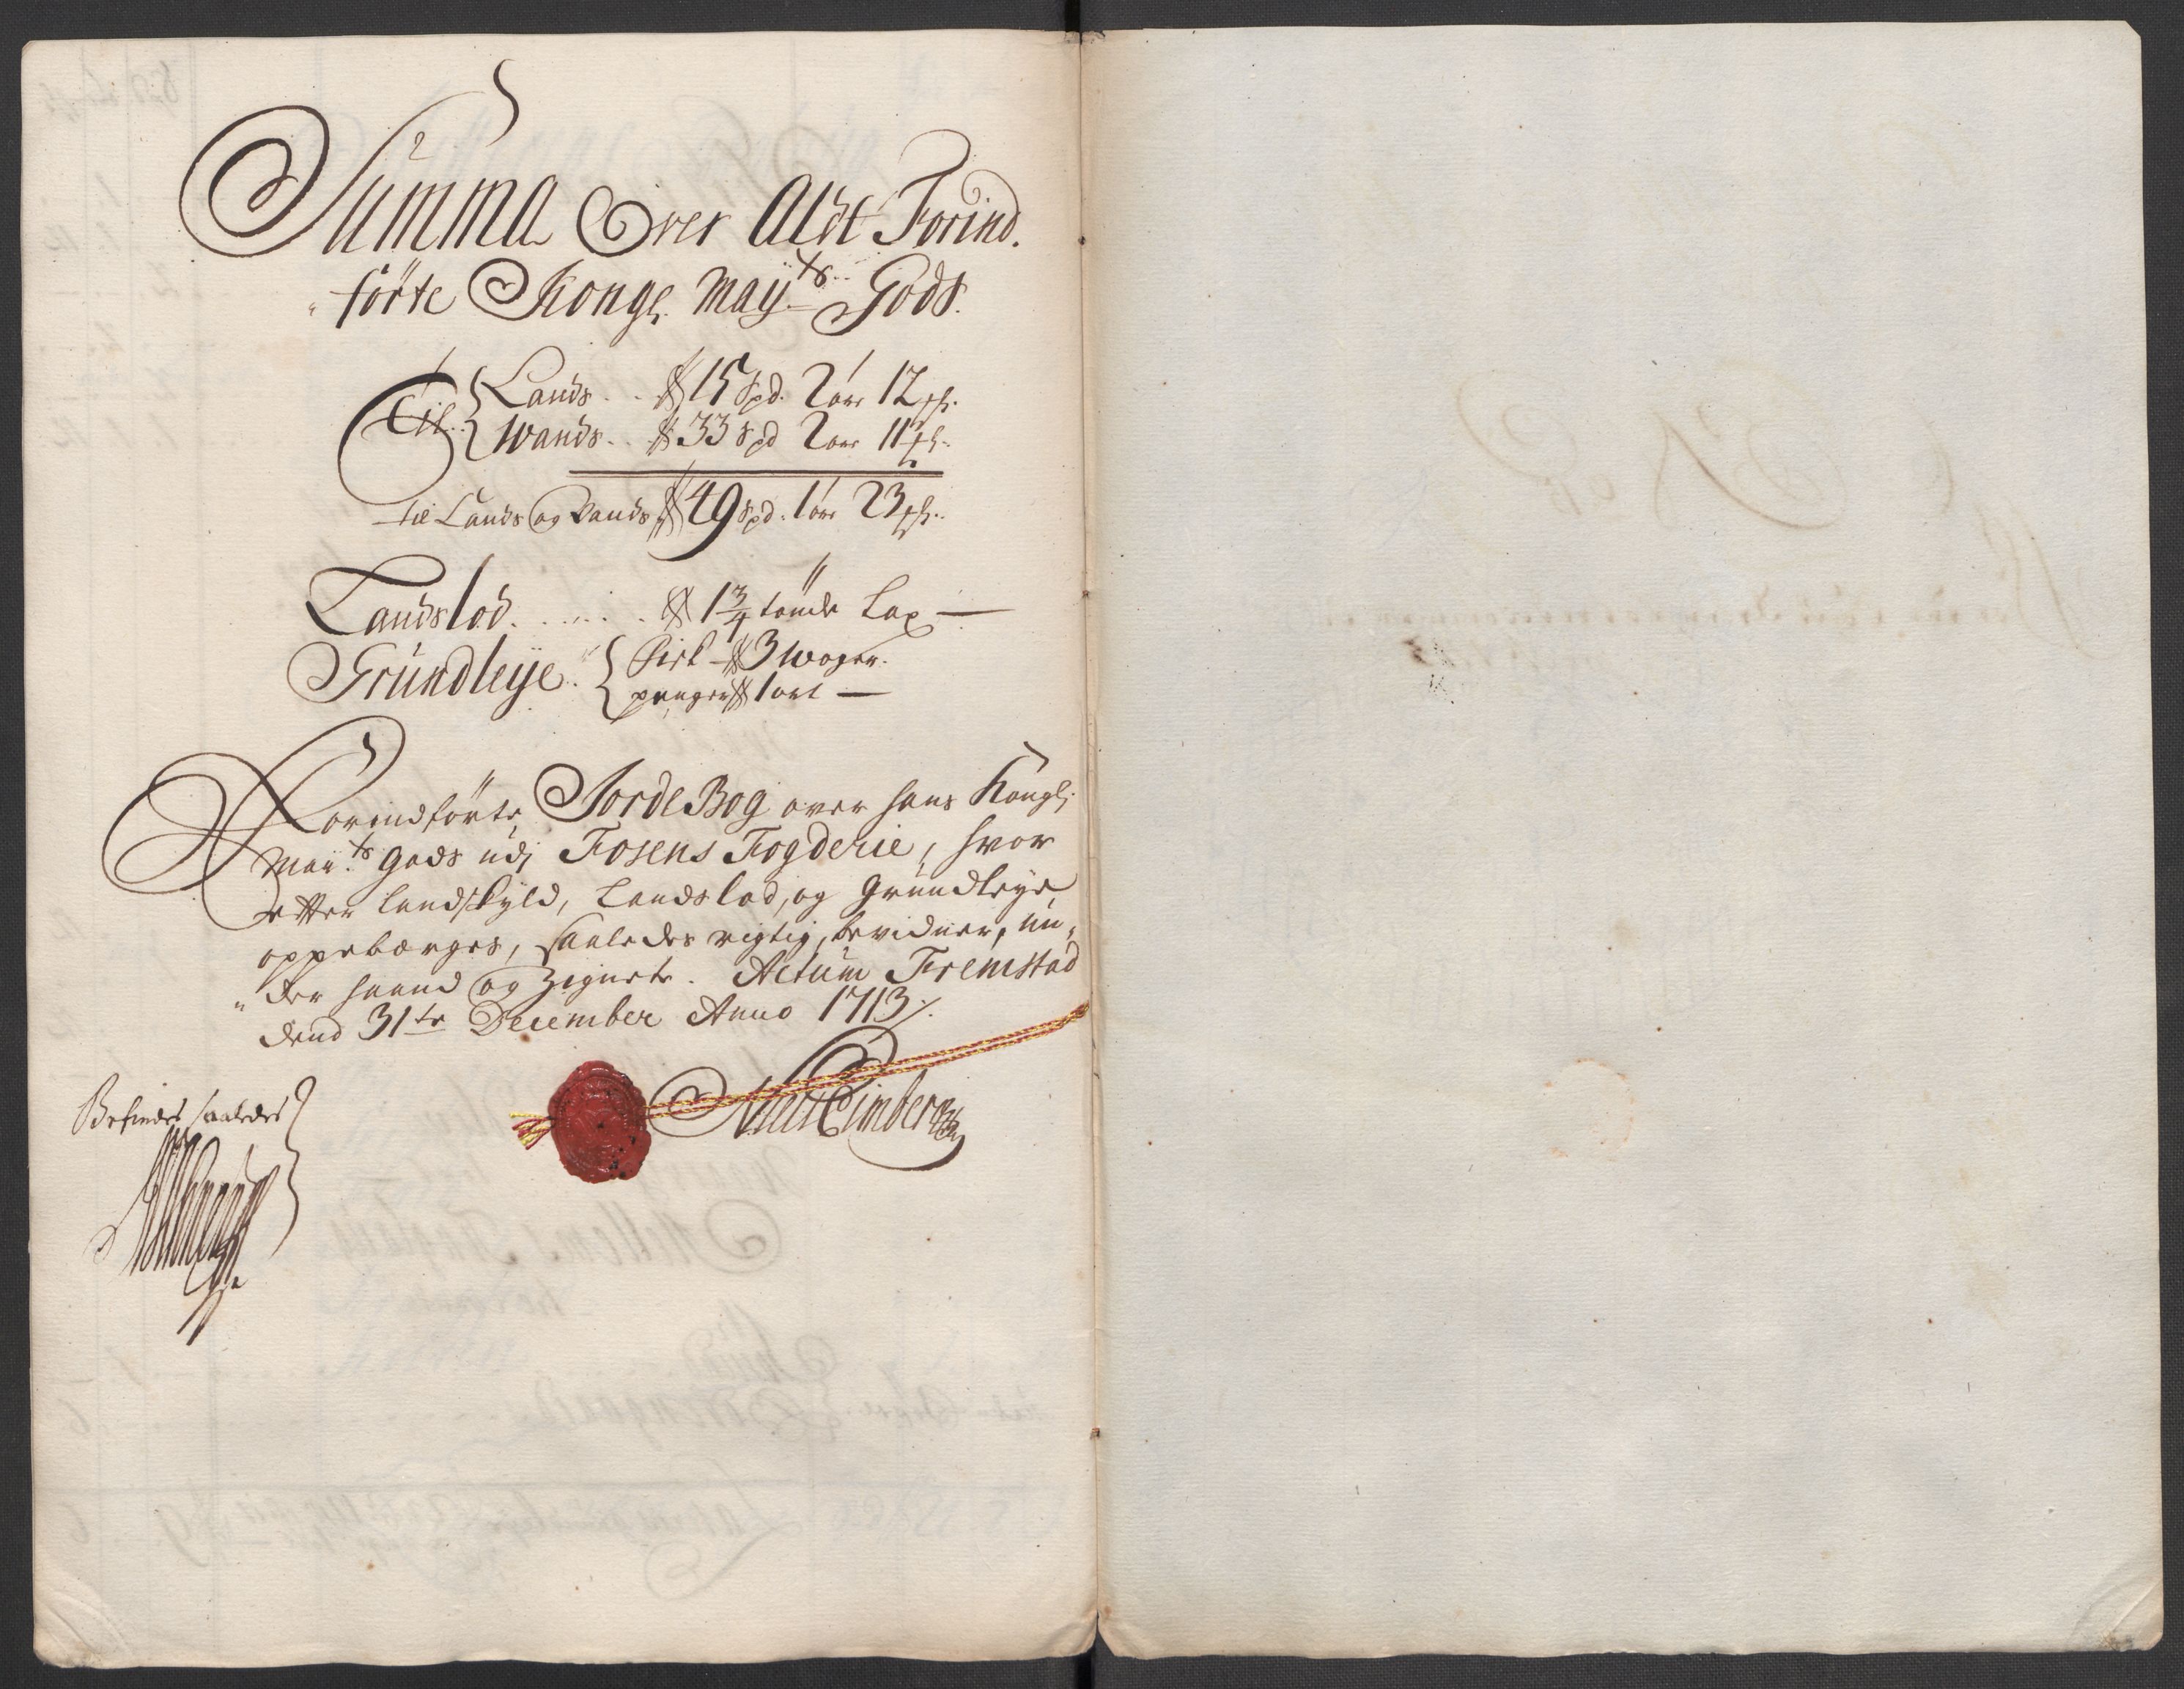 Summa Over Aldt Forind.
„førte Kongl. Maÿ:ts Gods.
Til {Lands . . 15 Spd. 2 ør 12 
Wands . . 33 Spd 2 ør 11 
til Lands og Vands 49 Spd. 1 ør 23 
Landslod . . . . . 1 3/4 tønde Lax —
Grundleÿe . {Fisk – 3 Woger.
penger 1 ort —
Forindførte JordeBog over hans Kongl:
Maÿ:ts Gods udj Fosens Fogderie, hvor
efter Landskyld, Landslod, og Grundleÿe
oppebærges, saaledes rigtig, bevidner, un„
„der haand og Zignete. Actum Fremstad
dend 31te December Anno 1713 ⁒
Befindes saaledes